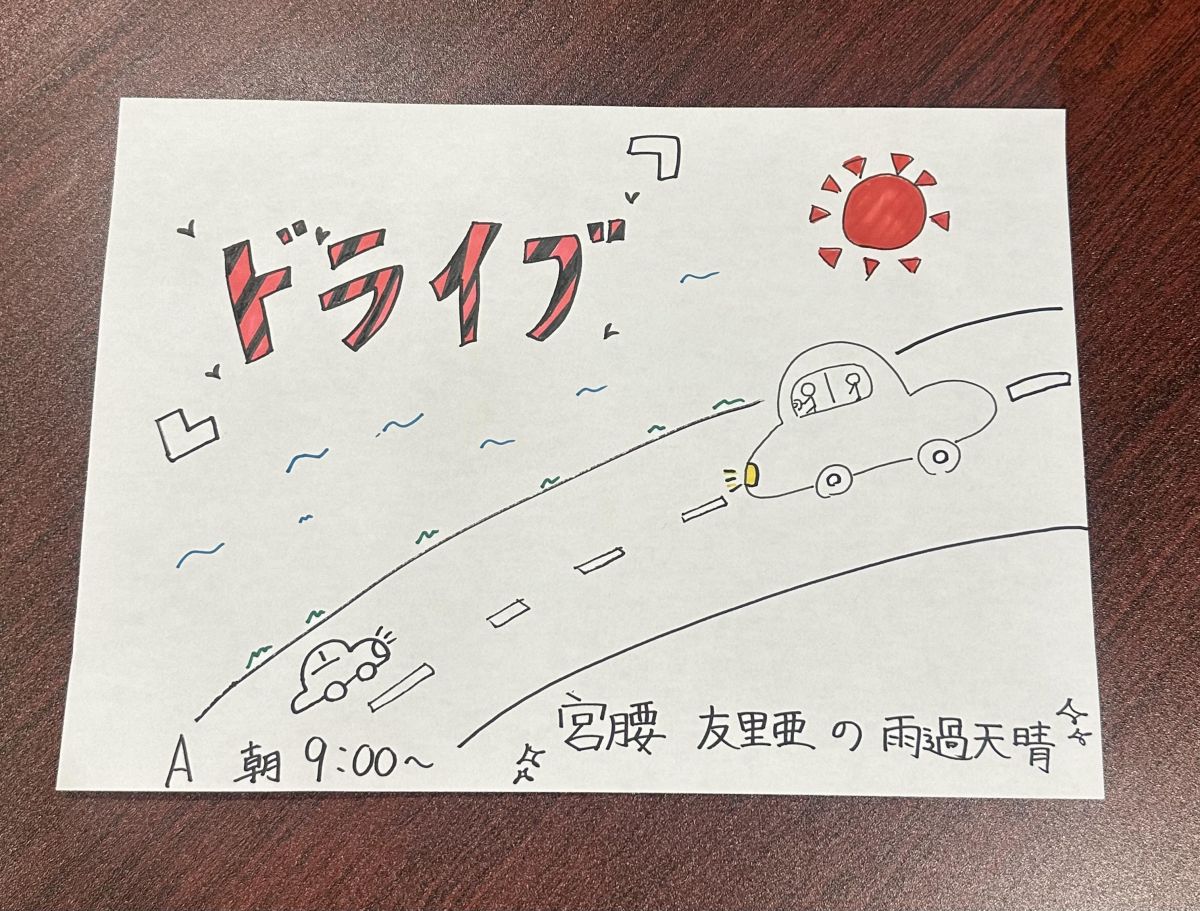 「ドライブ」
A 朝 9:00～
宮腰 友里亜 の 雨過天晴